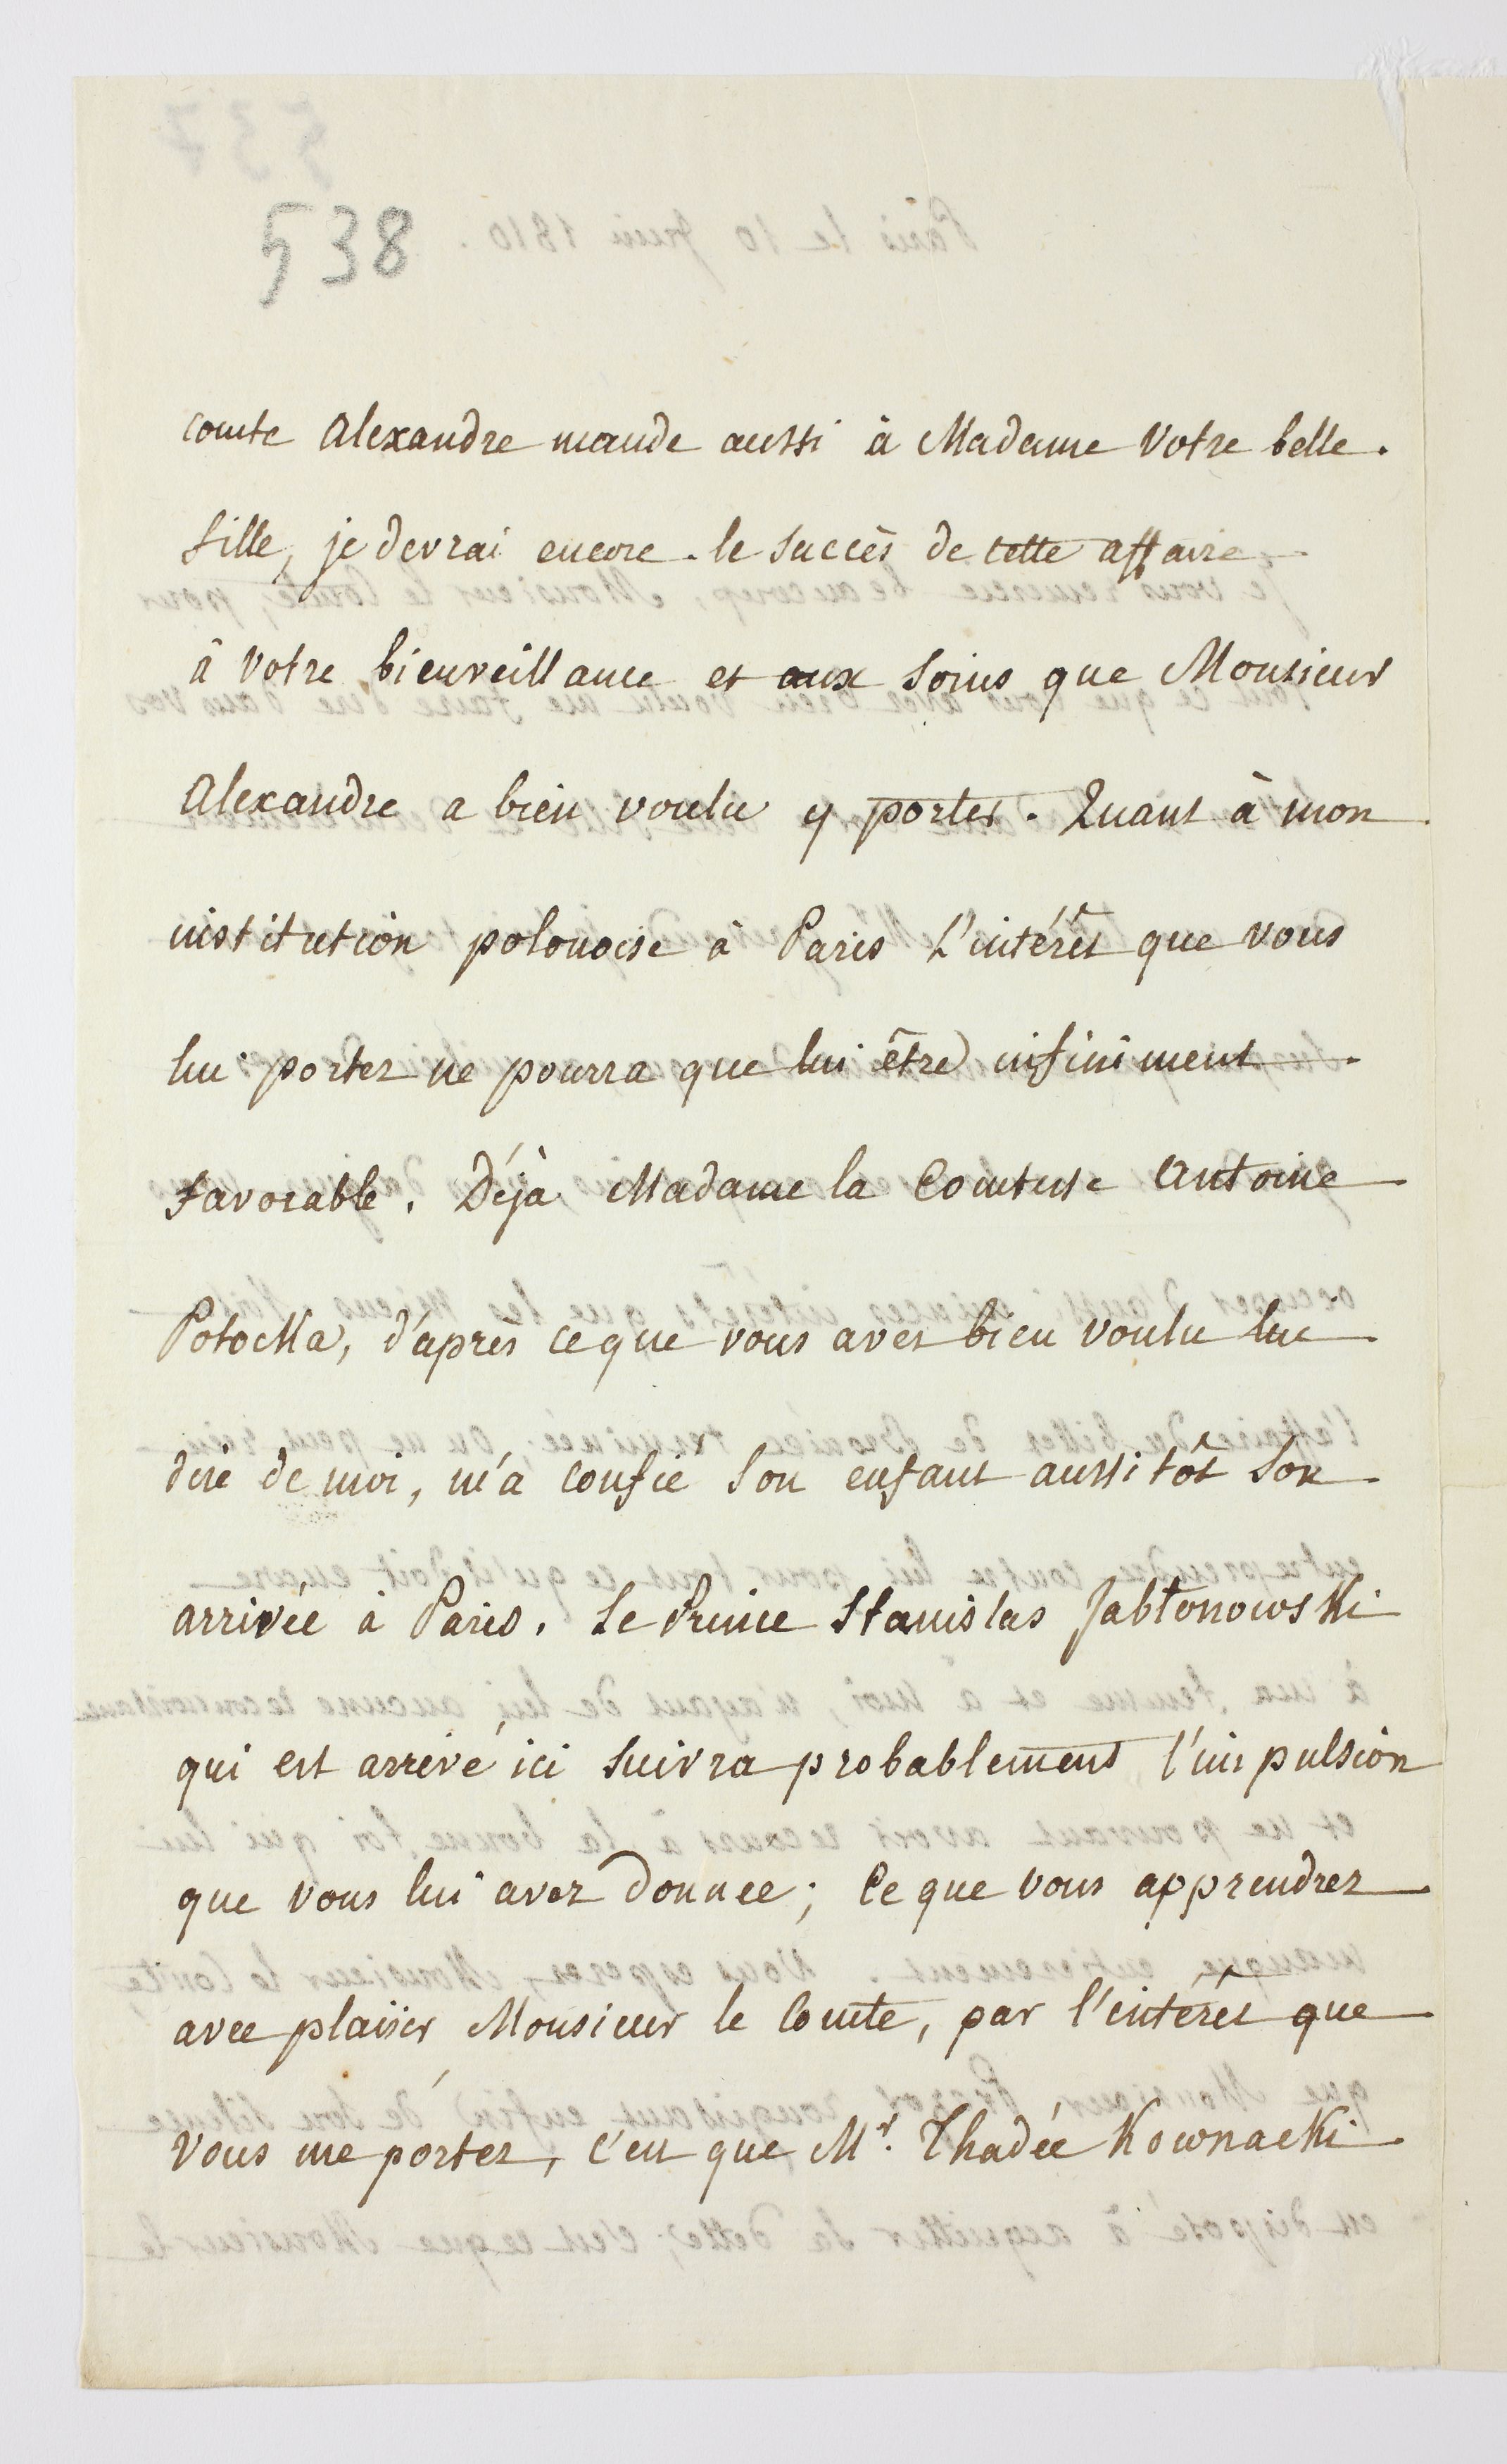 538
comte Alexandre mande aussi à Madame Votre belle.
fille, je devrai encore le succès de cette affaire
à Votre bienveillance et aux soins que Monsieur
Alexandre a bien voulu y porter. Quant à mon
institution polonoise à Paris L'intérêt que vous
lui portez ne pourra que lui être infiniment
favorable. Déjà Madame la Comtesse Antoine
Potocka, d'après ce que vous avez bien voulu lui
dire de moi, m'a confié son enfant aussitôt son
arrivée à Paris. Le Prince Stanislas Jabłonowski
qui est arrivé ici suivra probablement l'impulsion
que vous lui avez donnée; Ce que vous apprendrez
avec plaisir Monsieur le Comte, par l'intérêt que
vous me portez, c'est que Mr. Thadée Kownacki